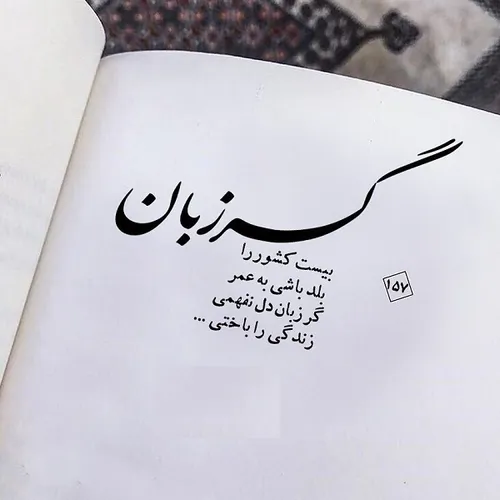 گر زبان
بیست کشور را
بلد باشی به عمر
گر زبان دل نفهمی
زندگی را باختی ...
۱۵۷